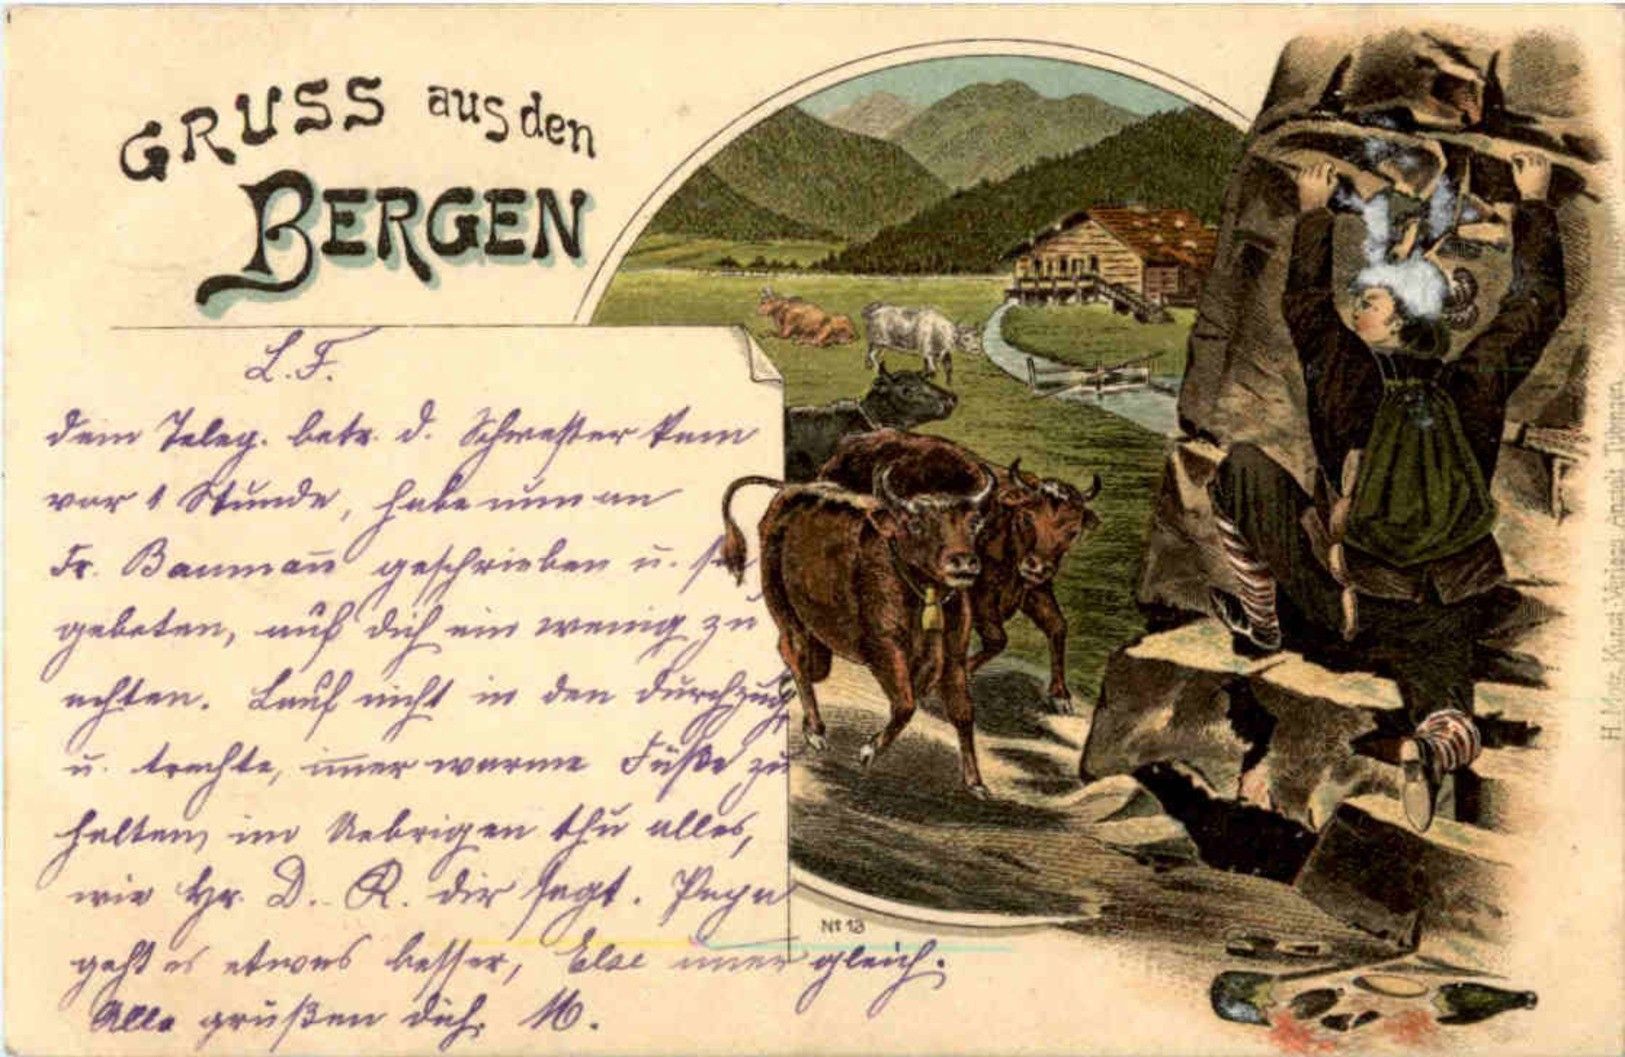 GRUSS aus den
BERGEN
L. F.
dein Teleg. betr. d. Schwester kam
vor 1 Stunde, habe nun an
Fr. Baumañ geschrieben u. sie
gebeten, auf dich ein wenig zu
achten. Lauf nicht in den Durchzug
u. trachte, im̅er warme Füße zu
halten, im Uebrigen thu alles,
wie Hr. D. R. dir sagt. Papa
geht es etwas besser, Else im̅er gleich.
Alle grüßen dich. M.
Nº 13
H. Metz, Kunst-Verlags-Anstalt Tübingen.